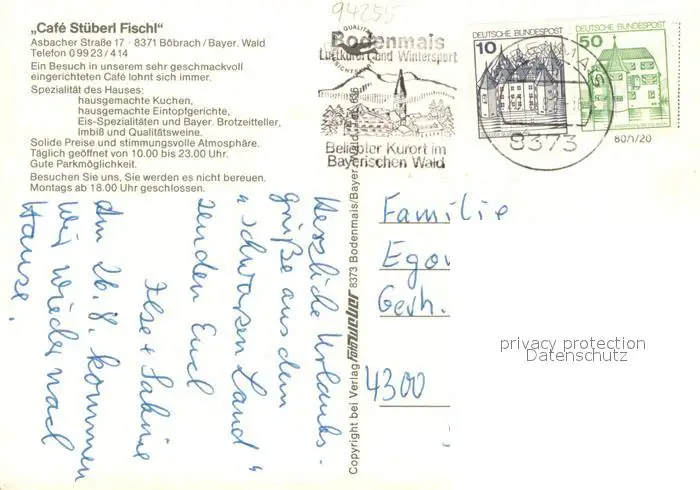 94255
„Café Stüberl Fischl"
Asbacher Straße 17 · 8371 Böbrach / Bayer. Wald
Telefon 0 99 23 / 4 14
Ein Besuch in unserem sehr geschmackvoll
eingerichteten Café lohnt sich immer.
Spezialität des Hauses:
hausgemachte Kuchen,
hausgemachte Eintopfgerichte,
Eis-Spezialitäten und Bayer. Brotzeitteller,
Imbiß und Qualitätsweine.
Solide Preise und stimmungsvolle Atmosphäre.
Täglich geöffnet von 10.00 bis 23.00 Uhr.
Gute Parkmöglichkeit.
Besuchen Sie uns, Sie werden es nicht bereuen.
Montags ab 18.00 Uhr geschlossen.
Bodenmais
Luftkurort und Wintersport
Beliebter Kurort im
Bayerischen Wald
DEUTSCHE BUNDESPOST
10
DEUTSCHE BUNDESPOST
50
8373
80/1/20
Herzliche Urlaubs-
grüße aus dem
"schwarzen Land"
senden Euch
Ilse + Sabine
Am 26.8. kommen
wir wieder nach
Hause.
Copyright bei Verlag foto weber 8373 Bodenmais/Bayer. Wald
Familie
Egon
Gerh.
4300
privacy protection
Datenschutz